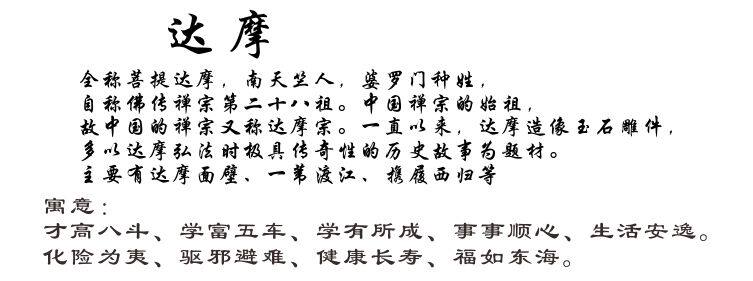 达摩
全称菩提达摩，南天竺人，婆罗门种姓，
自称佛传禅宗第二十八祖。中国禅宗的始祖，
故中国的禅宗又称达摩宗。一直以来，达摩造像玉石雕件，
多以达摩弘法时极具传奇性的历史故事为题材。
主要有达摩面壁、一苇渡江、携履西归等
寓意：
才高八斗、学富五车、学有所成、事事顺心、生活安逸。
化险为夷、驱邪避难、健康长寿、福如东海。